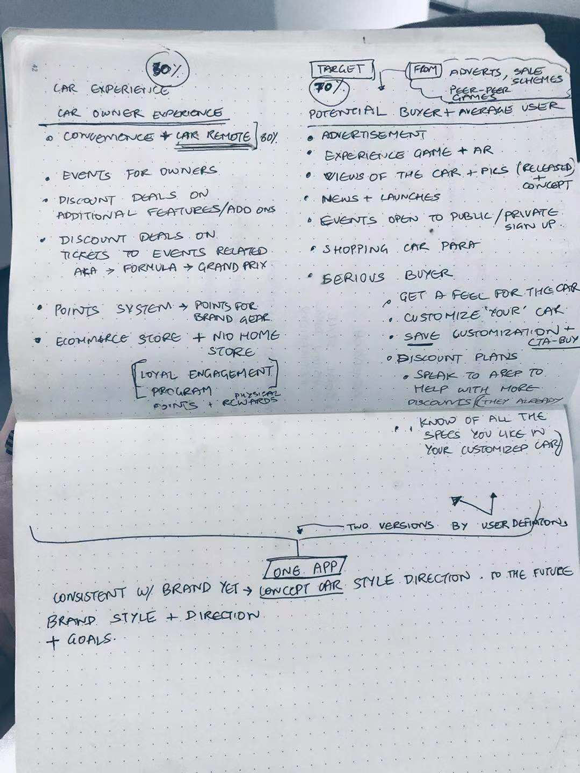 30%
CAR EXPERIENCE
CAR OWNER EXPERIENCE
CONVENIENCE + CAR REMOTE] 80%
EVENTS FOR OWNERS
DISCOUNT DEALS ON
ADDITIONAL FEATURES/ADD ONS
DISCOUNT DEALS ON
TICKETS TO EVENTS RELATED
AKA → FORMULA → GRAND PRIX
POINTS SYSTEM → POINTS FOR
BRAND GEAR
ECOMMERCE STORE + NIO HOME
STORE
[LOYAL ENGAGEMENT
PROGRAM
POINTS + PHYSICAL REWARDS]
TARGET
FROM ADVERTS, SALE
SCHEMES
PEER-PEER
GAMES
70%
POTENTIAL BUYER + AVERAGE USER
ADVERTISEMENT
EXPERIENCE GAME + AR
VIEWS OF THE CAR + PICS (RELEASED)
+
CONCEPT
NEWS + LAUNCHES
EVENTS OPEN TO PUBLIC/PRIVATE
SIGN UP.
SHOPPING CAR PARA
SERIOUS BUYER
GET A FEEL FOR THE CAR
CUSTOMIZE "YOUR" CAR
SAVE CUSTOMIZATION +
CTA-BUY
DISCOUNT PLANS
SPEAK TO A REP TO
HELP WITH MORE
DISCOUNTS (THEY ALREADY
KNOW OF ALL THE
SPECS YOU LIKE IN
YOUR CUSTOMIZED CAR)
TWO VERSIONS BY USER DEFINATIONS
ONE APP
CONSISTENT W/ BRAND YET → CONCEPT CAR STYLE DIRECTION. TO THE FUTURE
BRAND STYLE + DIRECTION
+ GOALS.